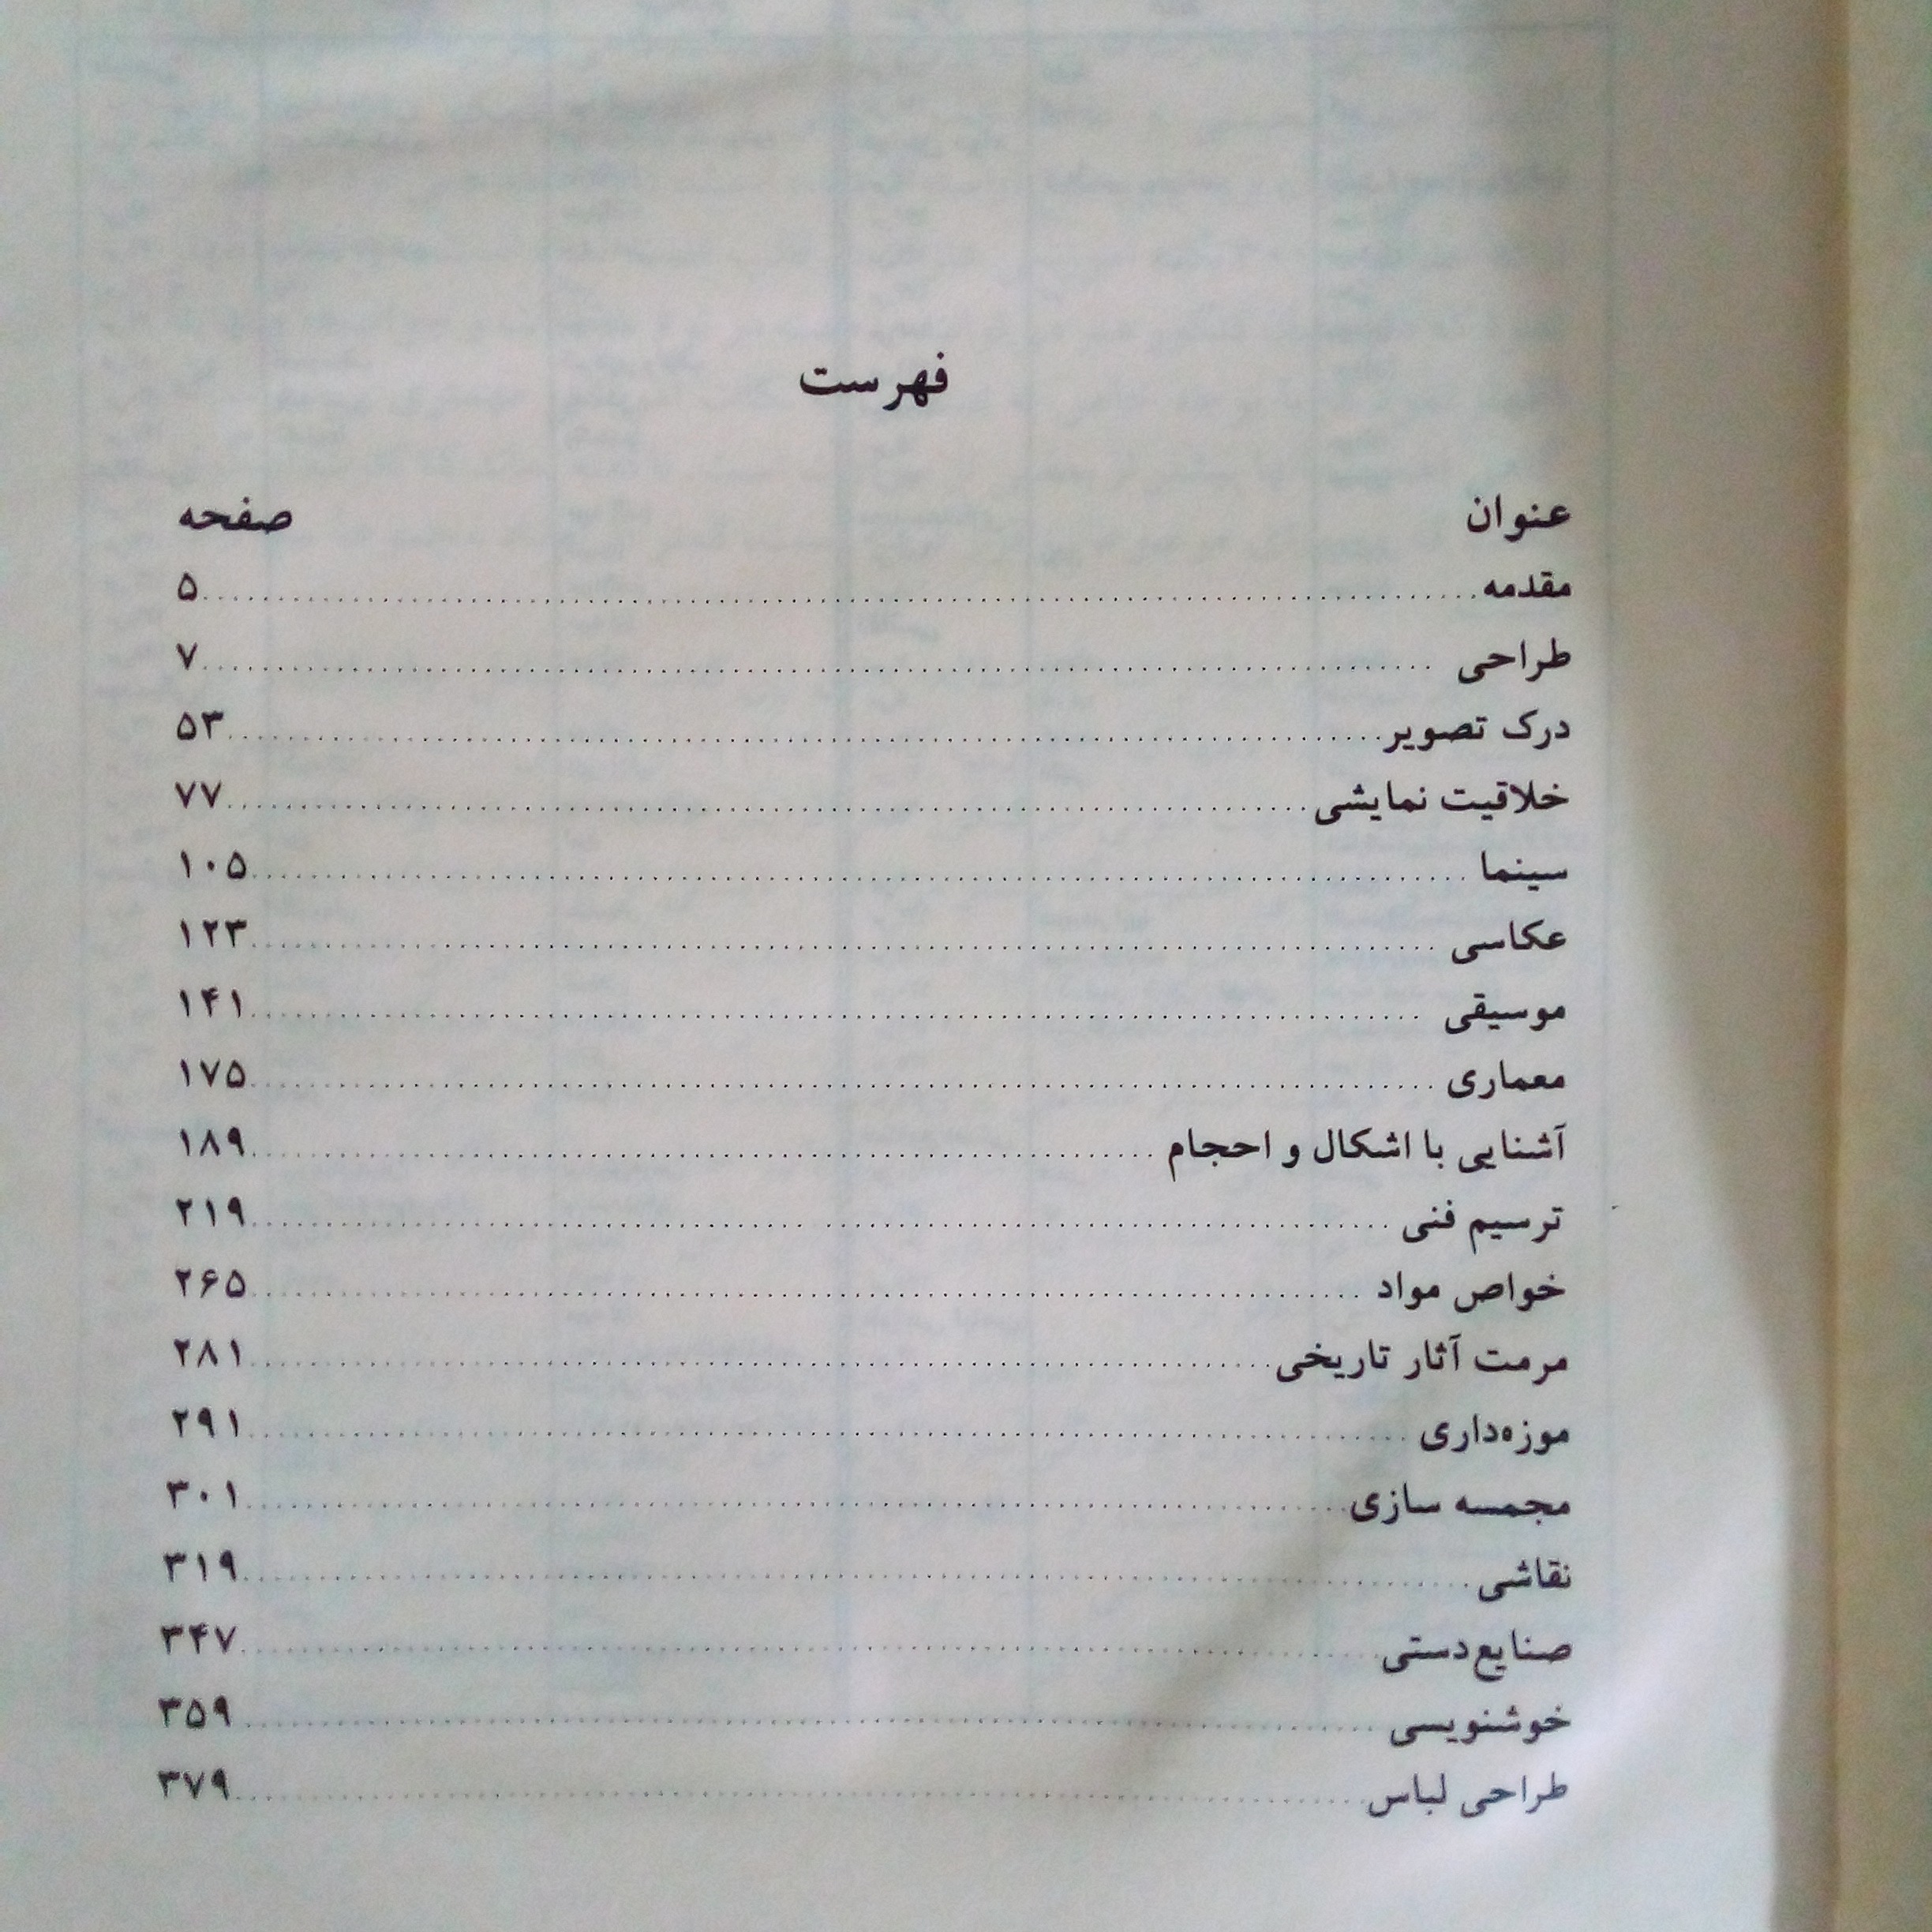 فهرست
عنوان صفحه
مقدمه ۵
طراحی ۷
درک تصویر ۵۳
خلاقیت نمایشی ۷۷
سینما ۱۰۵
عکاسی ۱۲۳
موسیقی ۱۴۱
معماری ۱۷۵
آشنایی با اشکال و احجام ۱۸۹
ترسیم فنی ۲۱۹
خواص مواد ۲۶۵
مرمت آثار تاریخی ۲۸۱
موزه‌داری ۲۹۱
مجمسه سازی ۳۰۱
نقاشی ۳۱۹
صنایع‌دستی ۳۴۷
خوشنویسی ۳۵۹
طراحی لباس ۳۷۹